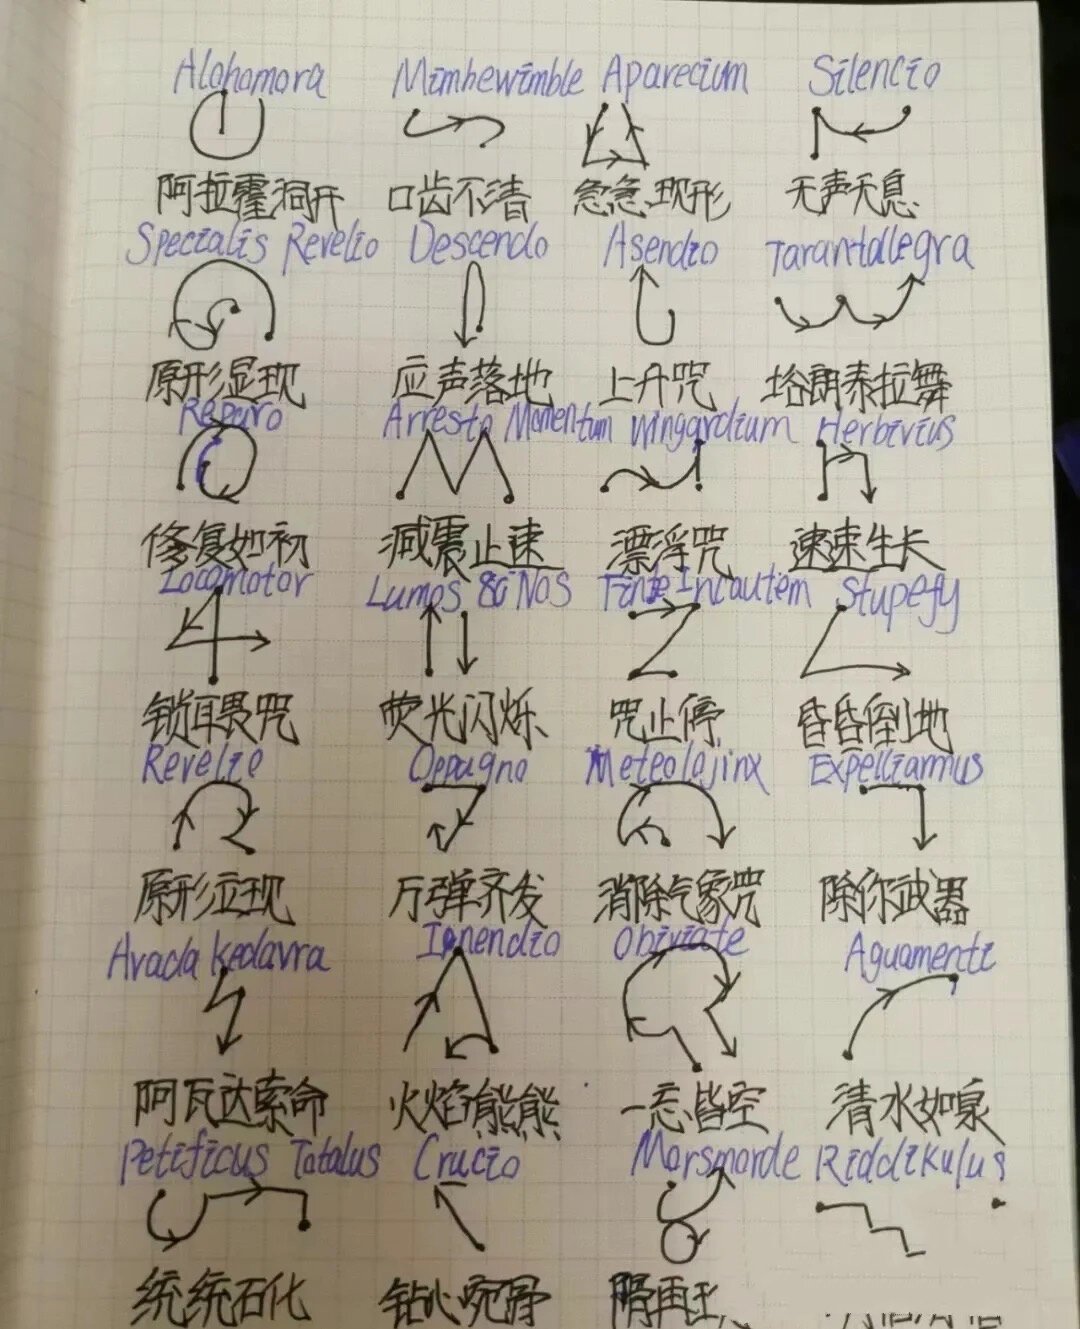 Alohomora Mimbewimble Aparecium Silencio
阿拉霍洞开 口齿不清 急急现形 无声无息
Specialis Revelio Descendo Asendio Tarantallegra
原形显现 应声落地 上升咒 塔朗泰拉舞
Reparo Arresto Momentum Wingardium Herbivius
修复如初 减震止速 漂浮咒 速速生长
Locomotor Lumos & NOS
锁 咒 荧光闪烁 咒止停 昏昏倒地
Stupefy
Revelie Oppugno Meteolojinx Expelliarmus
原形立现 万弹齐发 消除气象咒 除你武器
Avada Kedavra Inendio Obiviate Aguamenti
阿瓦达索命 火焰熊熊 一忘皆空 清水如泉
Petificus Totalus Crucio Morsmorde Riddikulus
统统石化 钻心剜骨